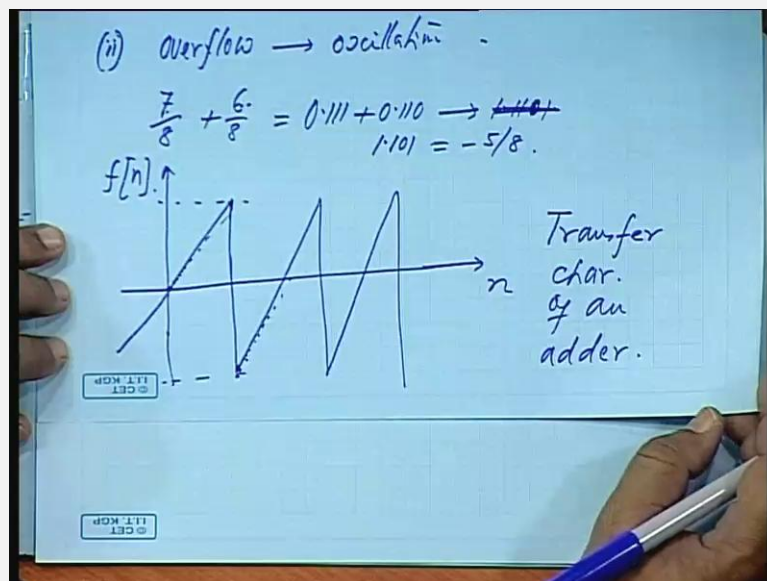 (ii) overflow → oscillation.
7/8 + 6/8 = 0.111 + 0.110 →
1.101 = -5/8.
f[n].
n
Transfer
char.
of an
adder.
© CET
I.I.T. KGP
© CET
I.I.T. KGP